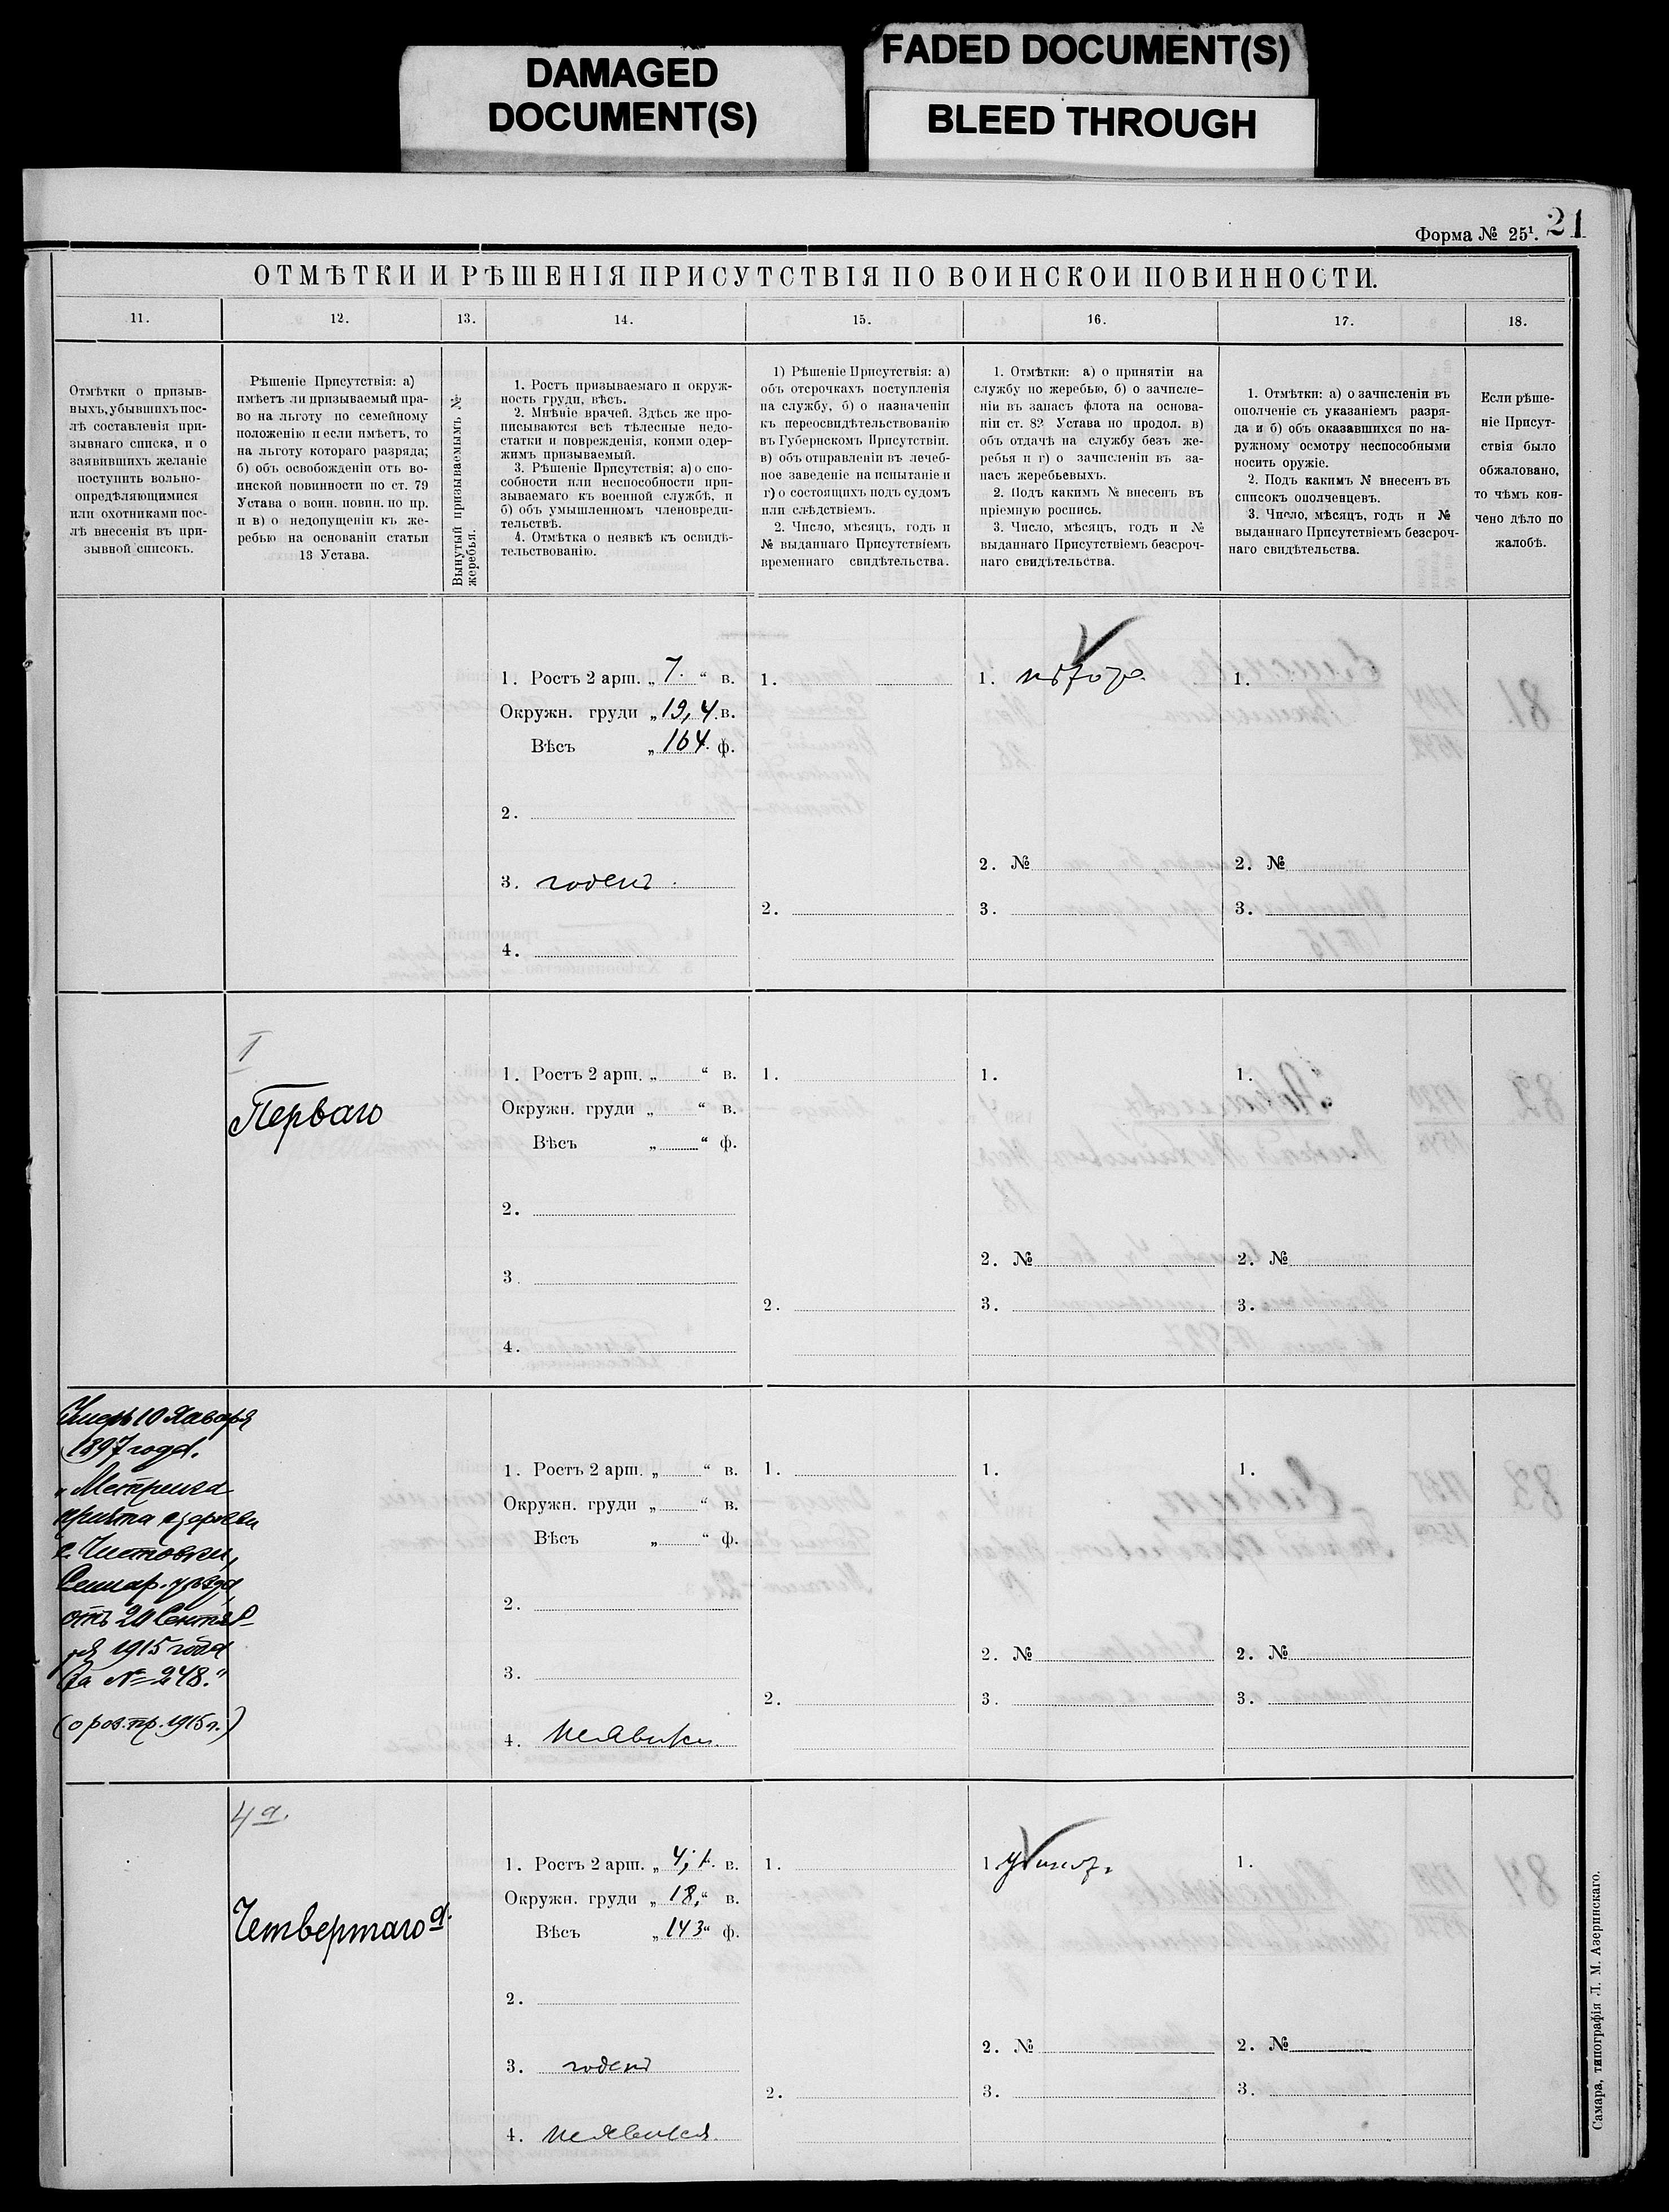 DAMAGED
DOCUMENT(S)
FADED DOCUMENT(S)
BLEED THROUGH
Форма № 25¹.
21
ОТМѢТКИ И РѢШЕНІЯ ПРИСУТСТВІЯ ПО ВОИНСКОИ ПОВИННОСТИ.
11.
12.
13.
14.
15.
16.
17.
18.
Отмѣтки о призыв-
ныхъ, убывшихъ пос-
лѣ составленія при-
зывнаго списка, и о
заявившихъ желаніе
поступить вольно-
опредѣляющимися
или охотниками пос-
лѣ внесенія въ при-
зывной списокъ.
Рѣшеніе Присутствія: а)
имѣетъ ли призываемый пра-
во на льготу по семейному
положенію и если имѣетъ, то
на льготу котораго разряда;
б) объ освобожденіи отъ во-
инской повинности по ст. 79
Устава о воин. повин. по пр.
и в) о недопущеніи къ же-
ребью на основаніи статьи
13 Устава.
Вынутый призываемымъ №
жеребья.
1. Ростъ призываемаго и окруж-
ность груди, вѣсъ.
2. Мнѣніе врачей. Здѣсь же про-
писываются всѣ тѣлесные недо-
статки и поврежденія, коими одер-
жимъ призываемый.
3. Рѣшеніе Присутствія; а) о спо-
собности или неспособности при-
зываемаго къ военной службѣ, и
б) объ умышленномъ членовреди-
тельствѣ.
4. Отмѣтка о неявкѣ къ освидѣ-
тельствованію.
1) Рѣшеніе Присутствія: а)
объ отсрочкахъ поступленія
на службу, б) о назначеніи
къ переосвидѣтельствованію
въ Губернскомъ Присутствіи.
в) объ отправленіи въ лечеб-
ное заведеніе на испытаніе и
г) о состоящихъ подъ судомъ
или слѣдствіемъ.
2. Число, мѣсяцъ, годъ и
№ выданнаго Присутствіемъ
временнаго свидѣтельства.
1. Отмѣтки: а) о принятіи на
службу по жеребью, б) о зачисле-
ніи въ запасъ флота на основа-
ніи ст. 82 Устава по продол. в)
объ отдачѣ на службу безъ же-
ребья и г) о зачисленіи въ за-
пасъ жеребьевыхъ.
2. Подъ какимъ № внесенъ въ
пріемную роспись.
3. Число, мѣсяцъ, годъ и №
выданнаго Присутствіемъ безсроч-
наго свидѣтельства.
1. Отмѣтки: а) о зачисленіи въ
ополченіе съ указаніемъ разря-
да и б) объ оказавшихся по на-
ружному осмотру неспособными
носить оружіе.
2. Подъ какимъ № внесенъ въ
списокъ ополченцевъ.
3. Число, мѣсяцъ, годъ и №
выданнаго Присутствіемъ безсроч-
наго свидѣтельства.
Если рѣше-
ніе Присут-
ствія было
обжаловано,
то чѣмъ кон-
чено дѣло по
жалобѣ.
1. Ростъ 2 арш. „ 7. “ в.
Окружн. груди „ 19,4 в.
Вѣсъ „ 164 ф.
2.
3. годенъ.
4.
1.
2.
1.
2. №
3.
1.
2. №
3.
I
Перваго
1. Ростъ 2 арш. „ “ в.
Окружн. груди „ “ в.
Вѣсъ „ “ ф.
2.
3.
4.
1.
2.
1.
2. №
3.
1.
2. №
3.
Умеръ 10 Января
1897 года.
„Метрика
причта церкви
с. Чистовки,
Самар. уѣзда,
отъ 20 Сентяб-
ря 1915 года
за № 248.“
(о роз. пр. 1915 г.)
1. Ростъ 2 арш. „ “ в.
Окружн. груди „ “ в.
Вѣсъ „ “ ф.
2.
3.
4. неявился.
1.
2.
1.
2. №
3.
1.
2. №
3.
4 а.
Четвертаго а.
1. Ростъ 2 арш. „ 4, в.
Окружн. груди „ 18,“ в.
Вѣсъ „ 143“ ф.
2.
3. годенъ
4. неявился.
1.
2.
1.
2. №
3.
1.
2. №
3.
Самара, типографія Л. М. Азеринскаго.